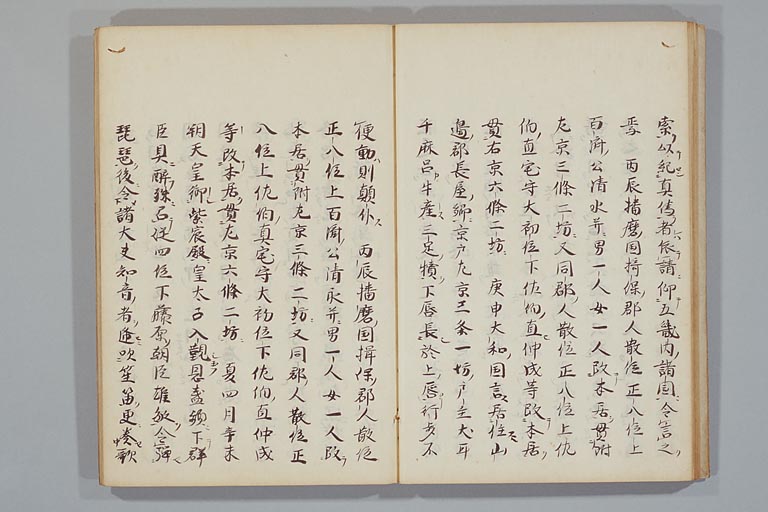 索以紀真偽者依請仰五畿内諸国令言之
焉 丙辰播磨国揖保郡人散位正八位上
百済公清永并男一人女一人改本居貫附
左京三條二坊又同郡人散位正八位上佐
伯直宅守大初位下佐伯直仲成等改本居
貫右京六條二坊 庚申大和国言居住山
邊郡長屋郷京戸左京三条一坊戸主犬耳
千麻呂牛産三足犢下唇長於上唇行歩不
便動則顛仆 丙辰播磨国揖保郡人散位
正八位上百済公清永并男一人女一人改
本居貫附左京三條二坊又同郡人散位正
八位上佐伯真宅守大初位下佐伯直仲成
等改本居貫左京六條二坊 夏四月辛未
朔天皇御紫宸殿皇太子入覲恩盞鍚下群
臣具酔殊召従四位下藤原朝臣雄敏令弾
琵琶後令諸大夫知音者逓吹笙笛更奏歌